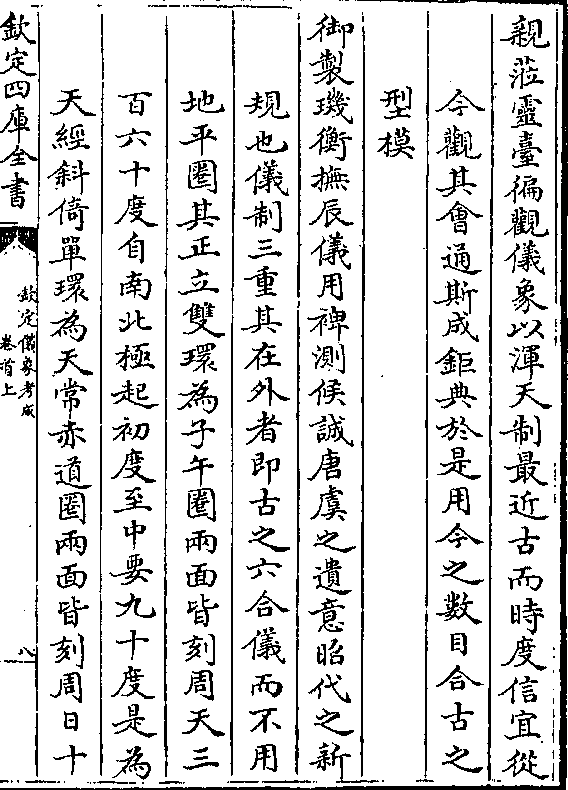 親蒞靈臺徧觀儀象以渾天制最近古而時度信宜從
今觀其會通斯成鉅典於是用今之數目合古之
型模
御製璣衡撫辰儀用禆測候誠唐虞之遺意昭代之新
規也儀制三重其在外者即古之六合儀而不用
地平圈其正立雙環為子午圈兩面皆刻周天三
百六十度自南北極起初度至中要九十度是為
天經斜倚單環為天常赤道圈兩面皆刻周日十
欽定四庫全書
欽定儀象考成
卷首上
八